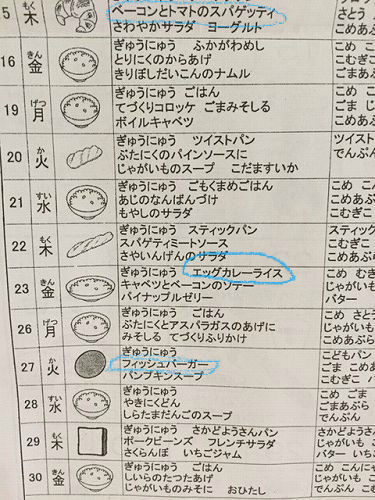 5 もく 木 ベーコンとトマトのスパゲッティ さとう
さわやかサラダ ヨーグルト こめあぶら
16 きん 金 ぎゅうにゅう ふかがわめし こめ こめ
とりにくのからあげ こめあぶら
きりぼしだいこんのナムル ごまあぶ
19 げつ 月 ぎゅうにゅう ごはん こめ じゃ
てづくりコロッケ ごまみそしる ごま じ
ボイルキャベツ こめあぶ
20 か 火 ぎゅうにゅう ツイストパン ツイスト
ぶたにくのパインソースに でんぷん
じゃがいものスープ こだますいか
21 すい 水 ぎゅうにゅう ごもくまめごはん こめ こん
あじのなんばんづけ こめあぶ
もやしのサラダ こむぎこ
22 もく 木 ぎゅうにゅう スティックパン スティック
スパゲティミートソース こむぎこ
さやいんげんのサラダ こめあぶ
23 きん 金 ぎゅうにゅう エッグカレーライス こめ むぎ
キャベツとベーコンのソテー じゃがい
パイナップルゼリー バター
26 げつ 月 ぎゅうにゅう ごはん こめ ご
ぶたにくとアスパラガスのあげに じゃがい
みそしる てづくりふりかけ こめあぶ
27 か 火 ぎゅうにゅう こどもパン
フィッシュバーガー ごま こめ
パンプキンスープ こむぎこ バ
28 すい 水 ぎゅうにゅう こめ ごま
やきにくどん ごまあぶら
しらたまだんごのスープ でんぷん
29 もく 木 ぎゅうにゅう さかどようさんパン さかどよう
ポークビーンズ フレンチサラダ じゃがいも
さくらんぼ いちごジャム こめあぶら
30 きん 金 ぎゅうにゅう ごはん こめ こんにゃ
しいらのたつたあげ じゃがいも
じゃがいものみそに おひたし でんぷん